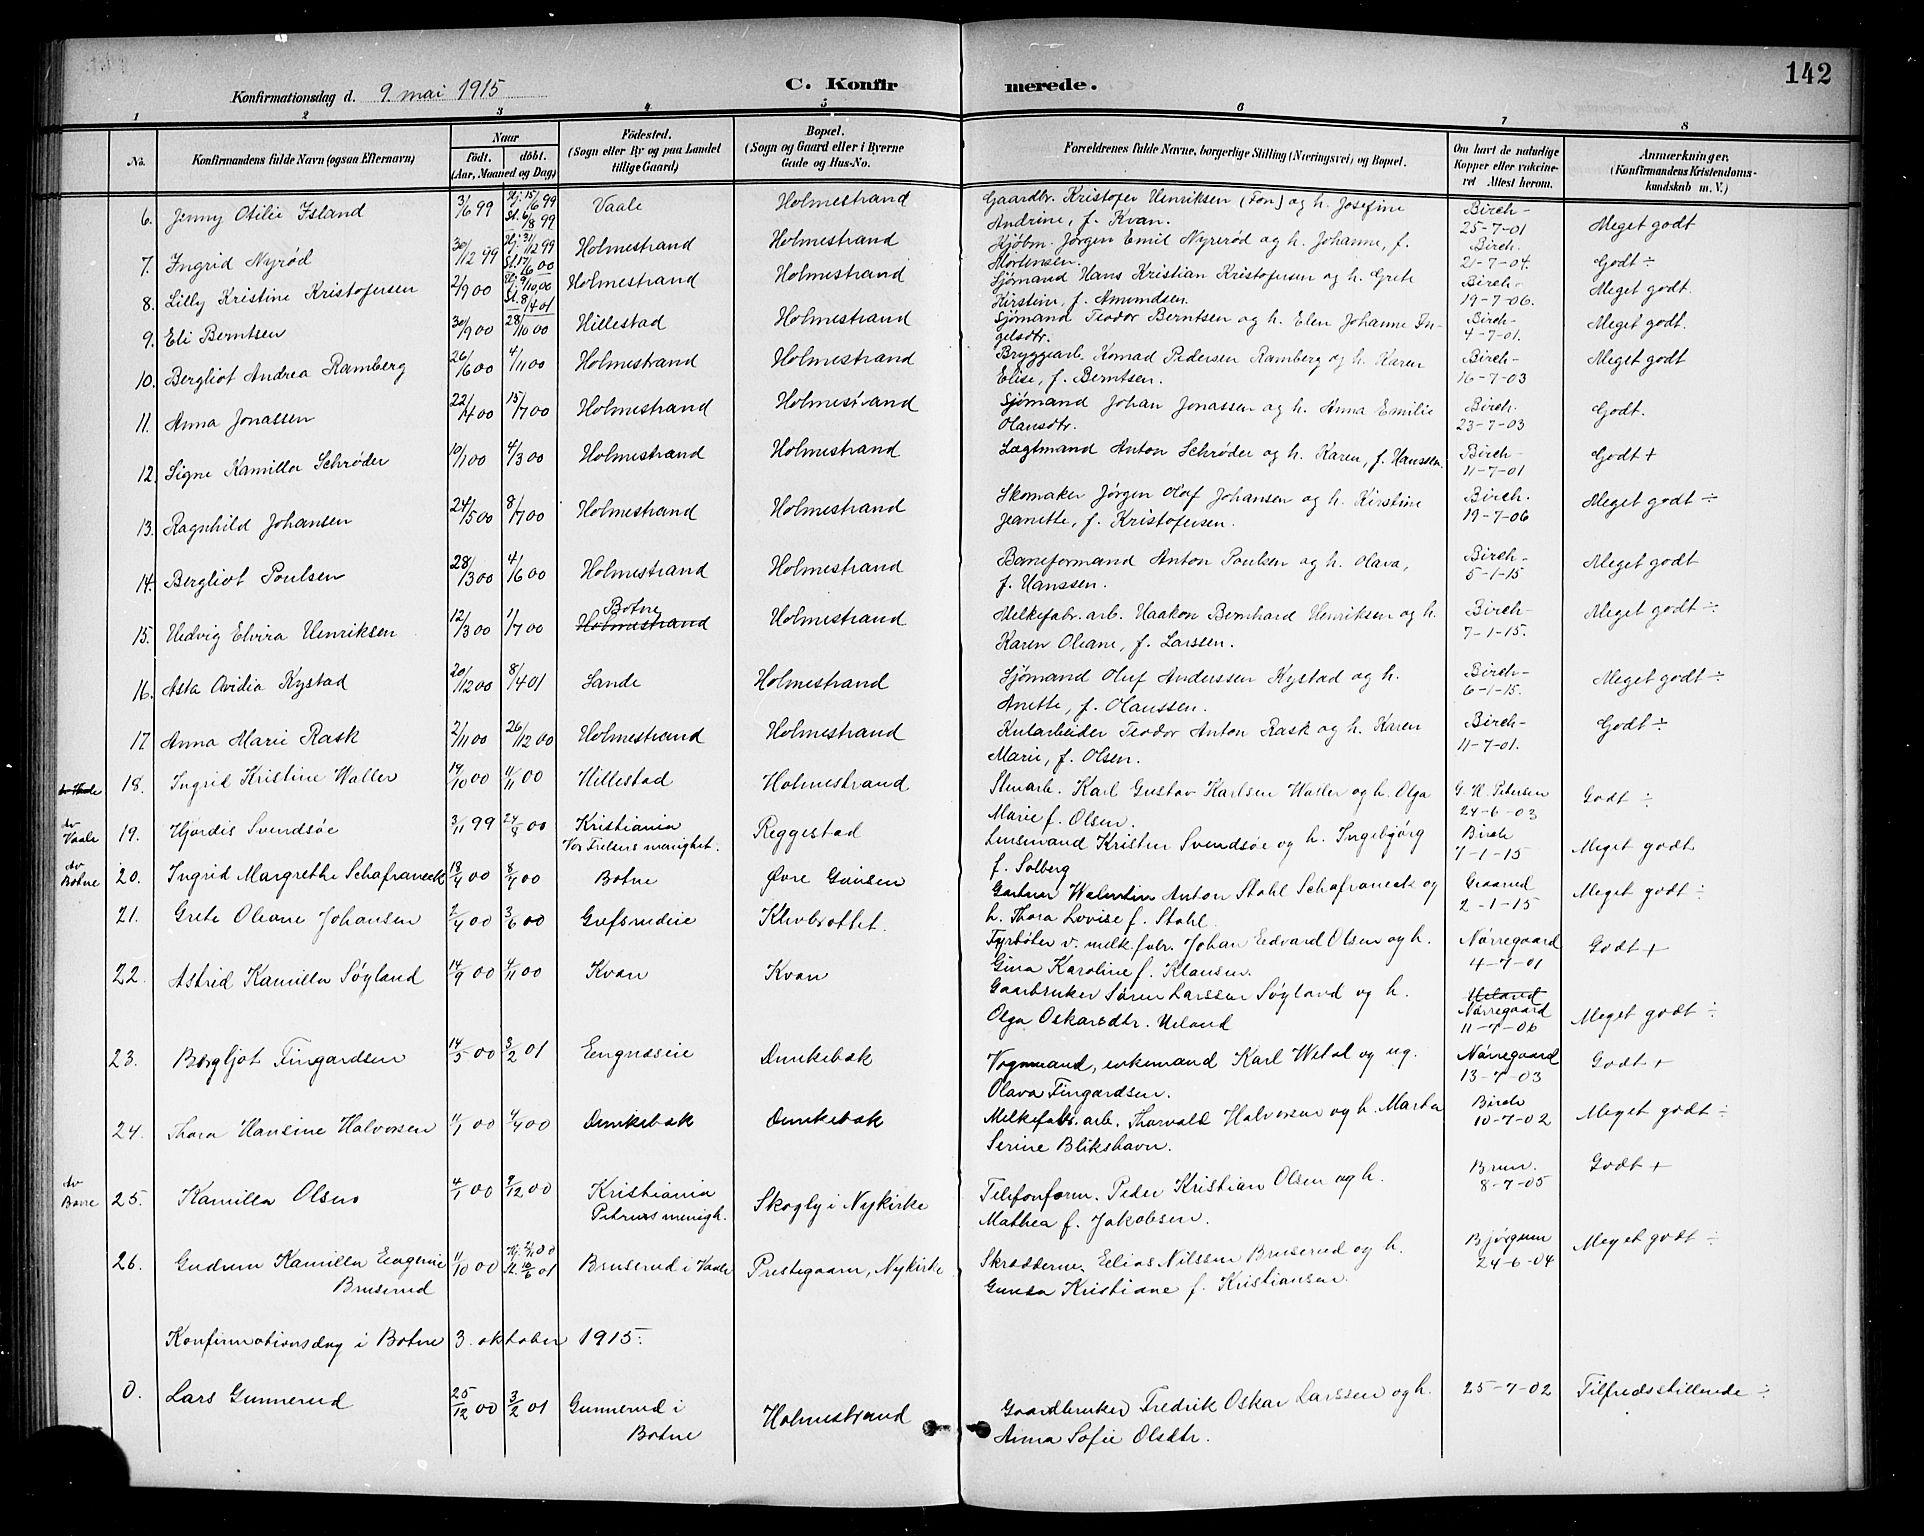 142
Konfirmationsdag d. 9 mai 1915
C. Konfirmerede.
1 2 3 4 5 6 7 8
No.
Konfirmandens fulde Navn (ogsaa Efternavn)
Naar
født. døbt.
(Aar, Maaned og Dag)
Fødested.
(Sogn eller By og paa Landet
tillige Gaard)
Bopæl.
(Sogn og Gaard eller i Byerne
Gade og Hus-No.
Forældrenes fulde Navne, borgerlige Stilling (Næringsvei) og Bopæl.
Om havt de naturlige
Kopper eller vakcine-
ret Attest herom.
Anmærkninger,
(Konfirmandens Kristendoms-
kundskab m. V.)
6. Jenny Otilie Island 3/6 99 Hj. 15/6 99 St. 6/8 99 Vaale Holmestrand Gaardbr. Kristofer Henriksen (Fon) og h. Josefine Birch- Meget godt
Andrine, f. Kvan. 25-7-01
7. Ingrid Nyrød 30/12 99 Hj. 31/12 99 St. 17/6 00 Holmestrand Holmestrand Kjøbm. Jørgen Emil Nyrerød og h. Johanne, f. Birch. Godt ÷
Mortensen. 21-7-04.
8. Lilly Kristine Kristofersen 2/9 00 Hj. 9/10 00 St. 8/4 01 Holmestrand Holmestrand Sjømand Hans Kristian Kristofersen og h. Grete Birch- Meget godt.
Kirstine, f. Amundsen. 19-7-06.
9. Eli Berntsen 30/9 00 28/10 00 Hillestad Holmestrand Sjømand Teodor Berntsen og h. Elen Johanne In- Birch- Meget godt.
gelsdtr. 4-7-01.
10. Bergliot Andrea Ramberg 26/6 00 4/11 00 Holmestrand Holmestrand Bryggearb. Konrad Pedersen Ramberg og h. Karen Birch- Meget godt
Elise, f. Berntsen. 16-7-03
11. Anna Jonassen 22/4 00 15/7 00 Holmestrand Holmestrand Sjømand Johan Jonassen og h. Anna Emilie Birch. Godt.
Olausdtr. 23-7-03
12. Signe Kamilla Schrøder 10/1 00 4/3 00 Holmestrand Holmestrand Lægtmand Anton Schrøder og h. Karen, f. Hanssen. Birch- Godt +
11-7-01
13. Ragnhild Johansen 24/5 00 8/7 00 Holmestrand Holmestrand Skomaker Jørgen Olaf Johansen og h. Kirstine Birch. Meget godt ÷
Jeanette, f. Kristofersen. 19-7-06
14. Bergliot Poulsen 28/3 00 4/6 00 Holmestrand Holmestrand Baneformand Anton Poulsen og h. Olava, Birch- Meget godt
f. Hanssen. 5-1-15
15. Hedvig Elvira Henriksen 12/3 00 1/7 00 Botne Holmestrand Holmestrand Melkefabr. arb. Haakon Bernhard Henriksen og h. Birch- Meget godt ÷
Karen Oleane, f. Larssen. 7-1-15.
16. Asta Ovidia Kystad 20/12 00 8/4 01 Sande Holmestrand Sjømand Oluf Anderssen Kystad og h. Birch- Meget godt ÷
Anette, f. Olaussen. 6-1-15.
17 Anna Marie Rask 2/11 00 26/12 00 Holmestrand Holmestrand Kularbeider Teodor Anton Rask og h. Karen Birch- Godt ÷
Marie, f. Olsen. 11-7-01.
18. Ingrid Kristine Waller 14/10 00 4/11 00 Hillestad Holmestrand Stenarb. Karl Gustav Karlsen Waller og h. Olga G. H. Petersen Godt ÷
Marie f. Olsen. 24-6-03
av Vaale 19. Hjørdis Svendsøe 3/11 99 24/8 00 Kristiania Reggestad Lensmand Kristen Svendsøe og h. Ingebjørg Birch Meget godt
Vor Frelsers menighet. f. Solberg 7-1-15
av Botne 20. Ingrid Margrethe Schafraneck 18/4 00 8/7 00 Botne Øvre Gausen Gartner Walentin Anton Stahl Schafraneck og Graarud Meget godt ÷
h. Thora Lovise f. Stahl. 2-1-15
21. Grete Oleane Johansen 2/4 00 3/6 00 Grefsrudeie Klevbrottet. Fyrbøter v. melk. fabr. Johan Edvard Olsen og h. Nørregaard Godt +
Gina Karoline f. Klausen. 4-7-01
22. Astrid Kamilla Søyland 14/9 00 4/11 00 Kvan Kvan Gaarbruker Søren Larssen Søyland og h. Ueland Nørregaard Meget godt ÷
Olga Oskarsdtr. Ueland 11-7-06
23. Bergljot Fingardsen 14/5 00 3/2 01 Engnæseie Dunkebæk Vognmand, enkemand Karl Wetal og ug. Nørregaard Godt +
Olava Fingardsen. 13-7-03
24. Thora Hansine Halvorsen 11/1 00 4/4 00 Dunkebæk Dunkebæk Melkefabr. arb. Thorvald Halvorsen og h. Marta Birch Meget godt ÷
Serine Blikshavn. 10-7-02
av Borre 25. Kamilla Olsen 4/1 00 9/12 00 Kristiania Skogly i Nykirke Telefonform. Peder Kristian Olsen og h. Bruun. Godt +
Petrus menigh. Mathea f. Jakobsen. 8-7-05
26. Gudrun Kamilla Eugenie 11/10 00 Hj. St. 16/6 01 Bruserud i Vaale Prestegaarn, Nykirke Skrædderne, Edias Nilssen Bruserud og h. Bjørgum Meget godt ÷
Bruserud Gunda Kristiane f. Kristiansen. 24-6-04
Konfirmationsdag i Botne 3. oktober 1915.
0. Lars Gunnerud 25/12 00 3/2 01 Gunnerud i Holmestrand Gaardbruker Fredrik Oskar Larssen og h. 25-7-02 Tilfredsstillende ÷
Botne Anna Sofie Olsdtr.